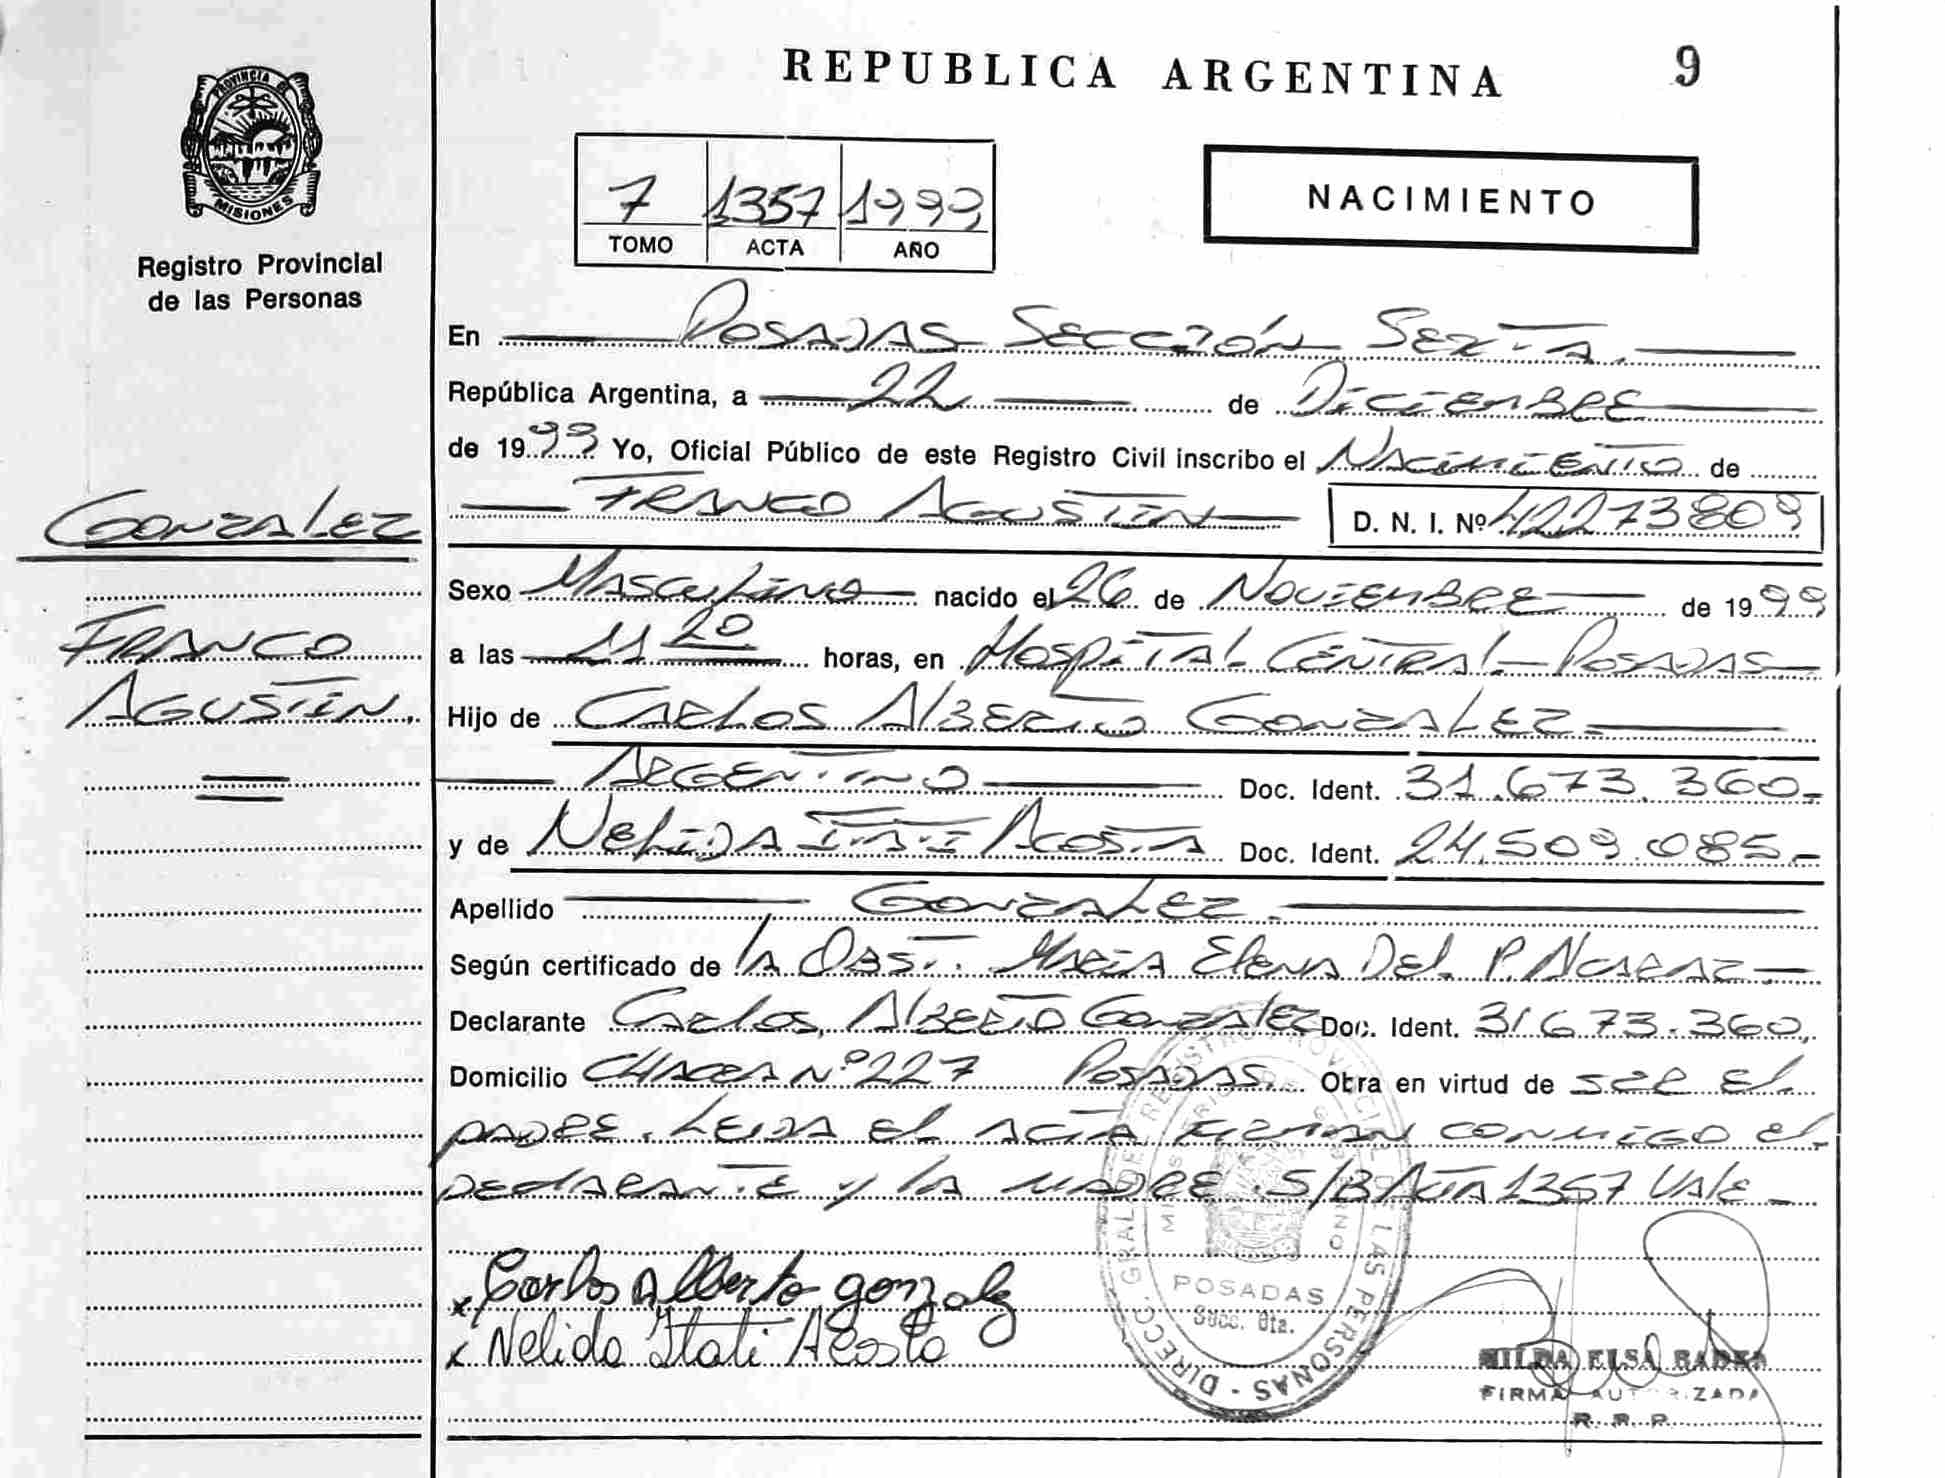 REPUBLICA ARGENTINA
9
PROVINCIA DE
MISIONES
Registro Provincial
de las Personas
7 1357 1999
TOMO ACTA AÑO
NACIMIENTO
En Posadas Sección Sexta.
República Argentina, a 22 de Diciembre
de 1999 Yo, Oficial Público de este Registro Civil inscribo el Nacimiento de
Franco Agustin D. N. I. Nº 42273809
Gonzalez
Franco
Agustin.
Sexo Masculino nacido el 26 de Noviembre de 1999
a las 11 20 horas, en Hospital Central - Posadas
Hijo de Carlos Alberto Gonzalez
Argentino Doc. Ident. 31.673.360
y de Nelida Itati Acosta Doc. Ident. 24.509.085
Apellido Gonzalez
Según certificado de la Obst. Maria Elena Del P. Alcaraz
Declarante Carlos Alberto Gonzalez Doc. Ident. 31673.360
Domicilio Chacra Nº 227 Posadas Obra en virtud de ser el
padre. Leida el acta firman conmigo el
declarante y la madre. S/B Acta 1357 Vale
x Carlos Alberto gonzalez
x Nelida Itati Acosta
DIRECC. GRAL. DE REGISTRO PROVINCIAL DE LAS PERSONAS
POSADAS
Secc. 6ta.
HILDA ELSA
FIRMA AUTORIZADA
R. P. P.